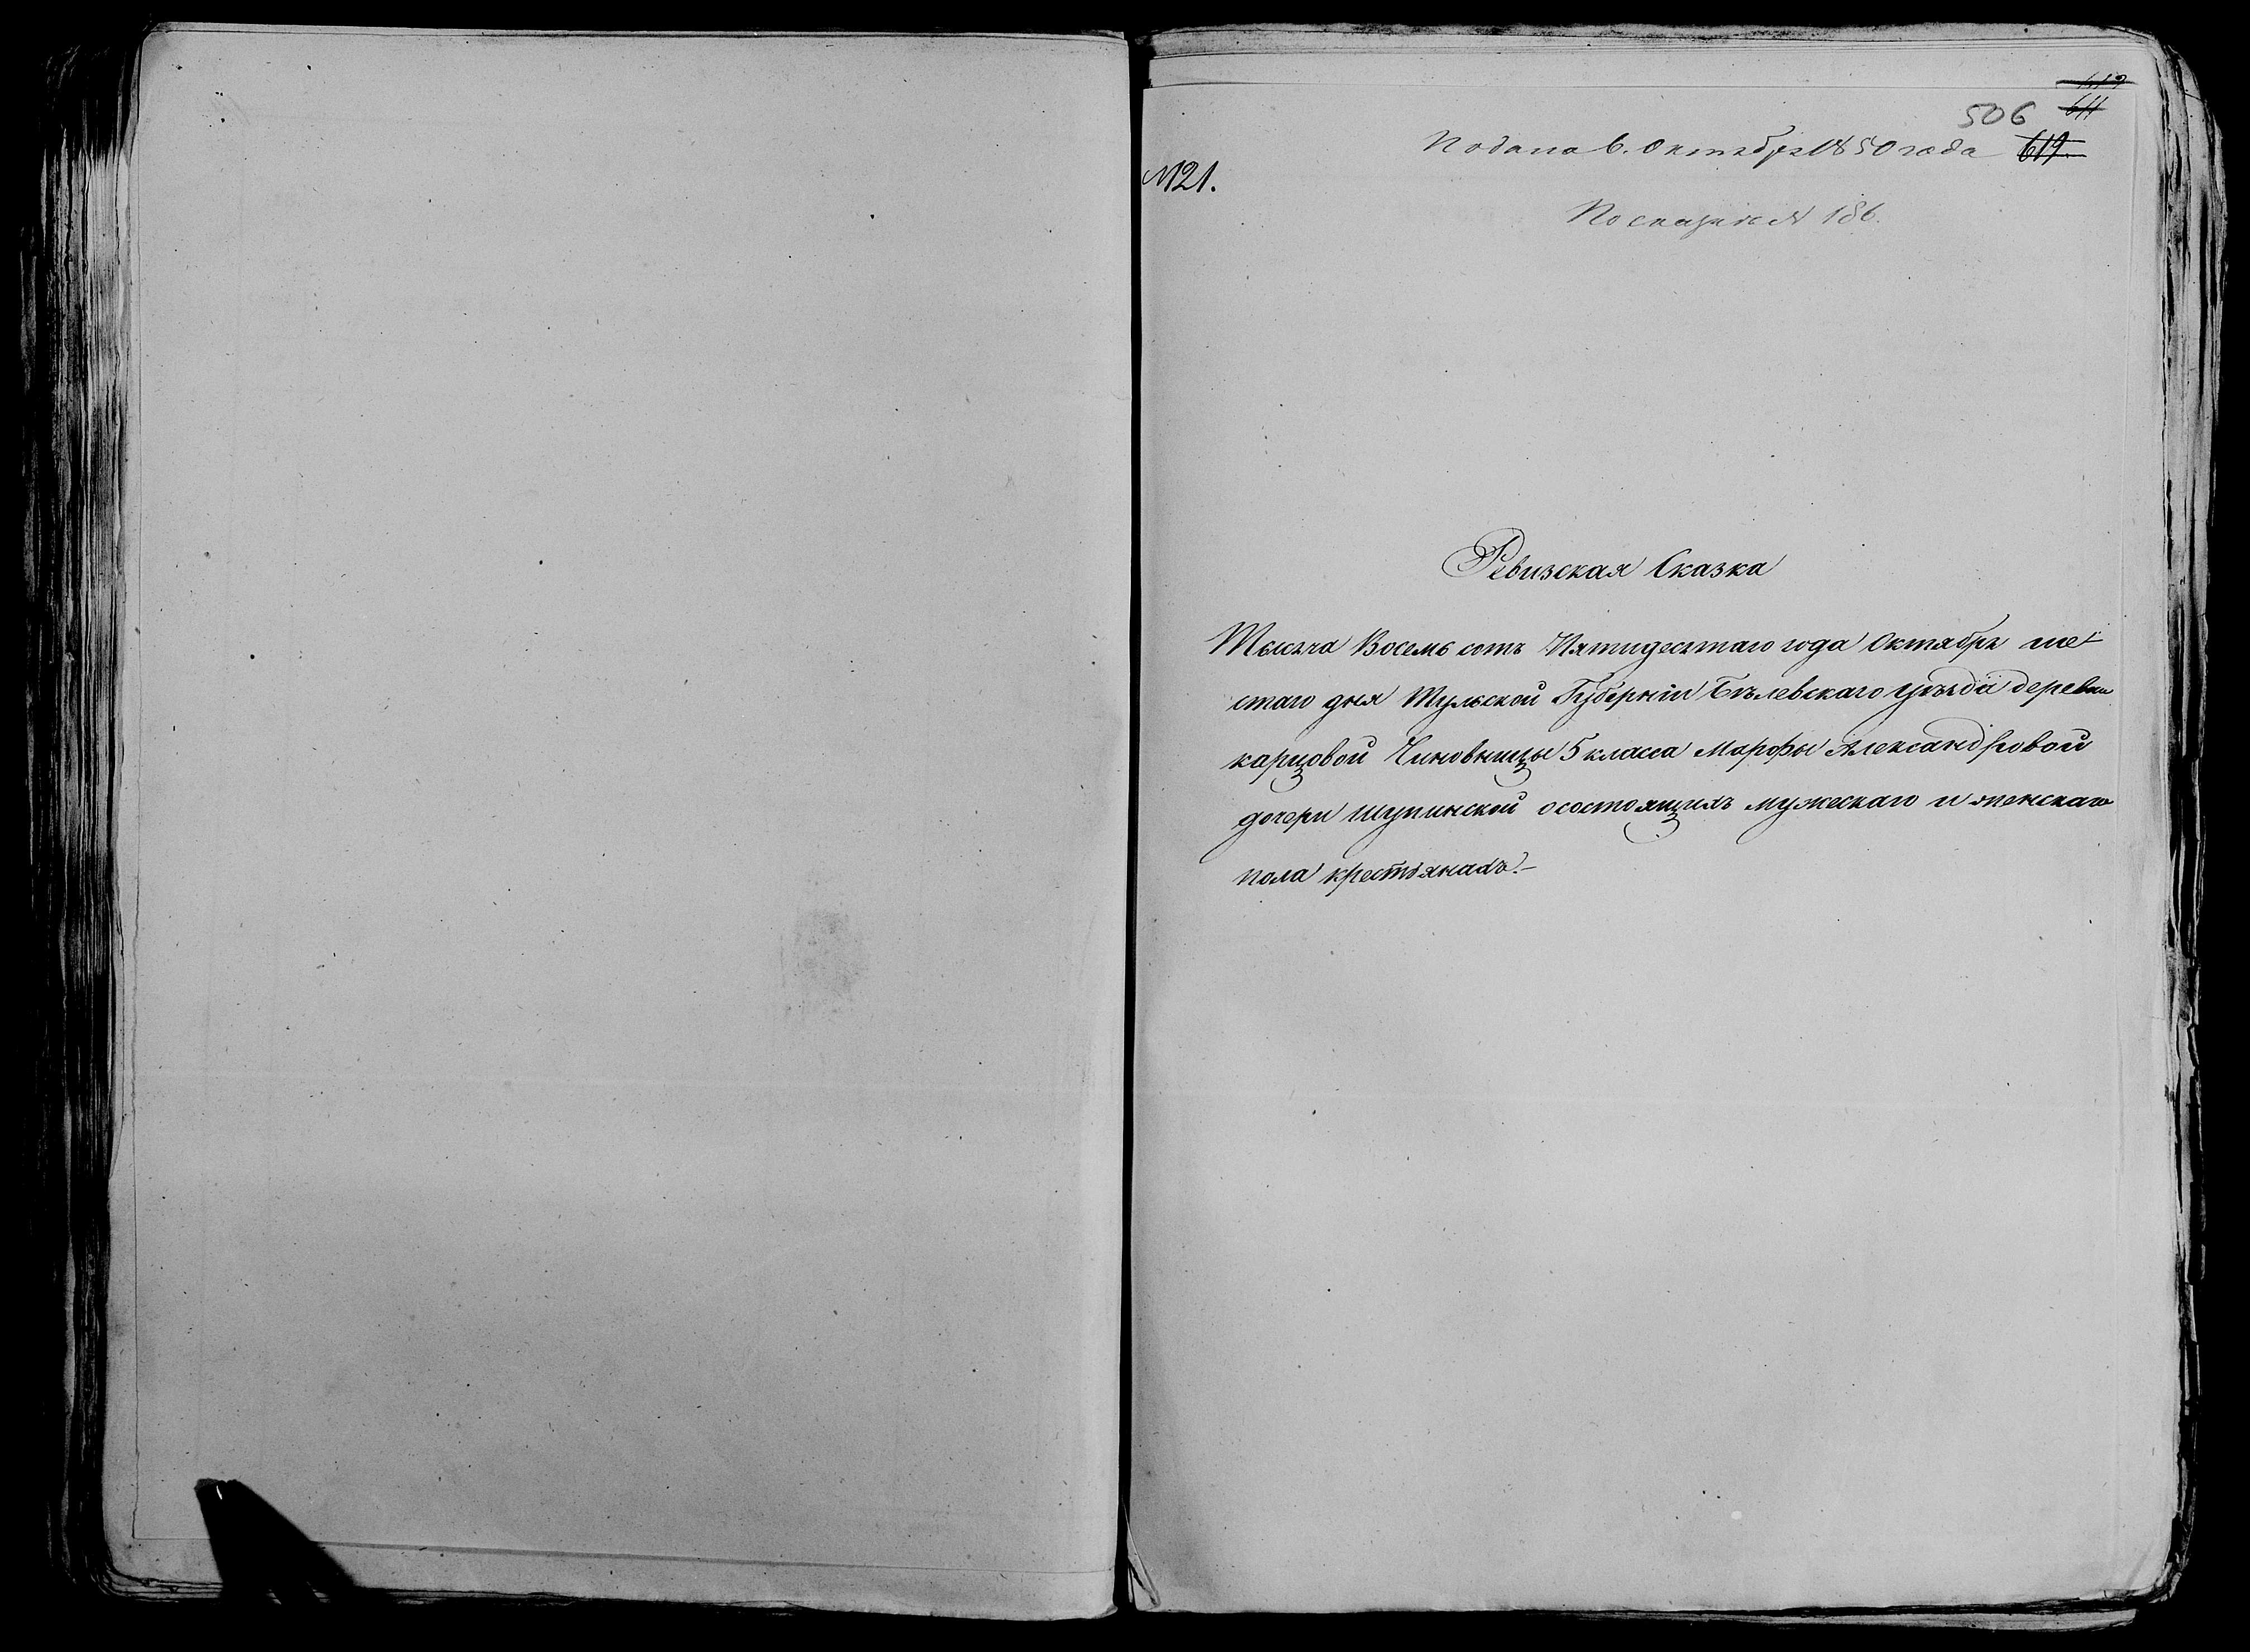 619
611
506
Подана 6. Октября 1850 года 619
№121.
По сказке № 186.
Ревизская Сказка
Тысяча Восемь сотъ Пятидесятаго года Октября ше-
стаго дня Тульской Губерніи Бѣлевскаго уѣзда деревни
карцовой Чиновницы 5 класса Марфы Александровой
дочери Шупинской осостоящихъ мужескаго и женскаго
пола крестьянахъ.-